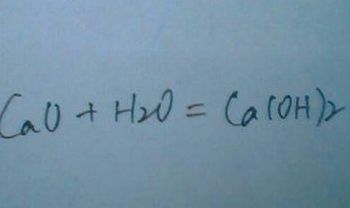 CaO + H2O = Ca(OH)2